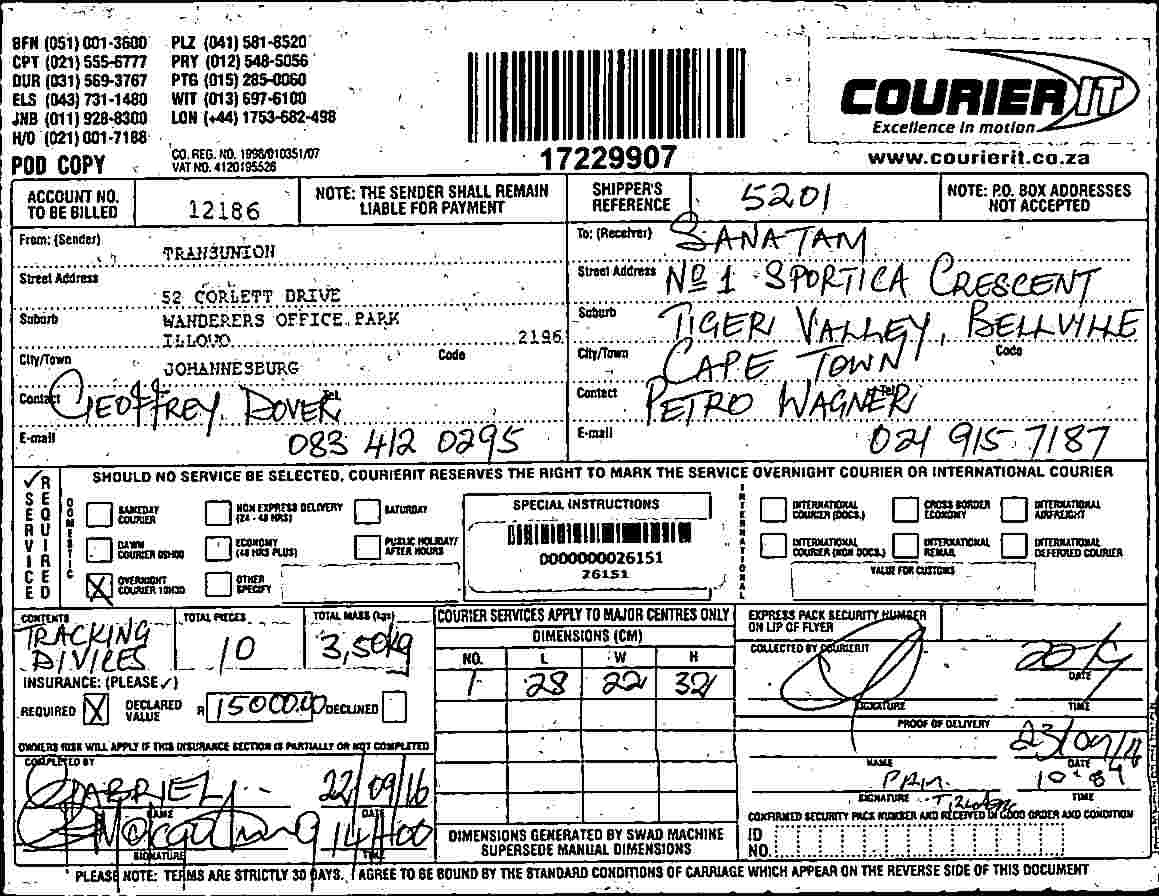 BFN (051) 001-3600 PLZ (041) 581-8520
CPT (021) 555-6777 PRY (012) 548-5056
DUR (031) 569-3767 PTG (015) 285-0060
ELS (043) 731-1480 WIT (013) 697-6100
JNB (011) 928-8300 LON (+44) 1753-682-498
H/O (021) 001-7188
CO. REG. NO. 1996/010351/07
POD COPY VAT NO. 4120195526
17229907
COURIER IT
Excellence in motion
www.courierit.co.za
ACCOUNT NO. TO BE BILLED 12186
NOTE: THE SENDER SHALL REMAIN LIABLE FOR PAYMENT
SHIPPER'S REFERENCE 5201
NOTE: P.O. BOX ADDRESSES NOT ACCEPTED
From: (Sender) TRANSUNION
Street Address 52 CORLETT DRIVE
Suburb WANDERERS OFFICE PARK
ILLOVO 2196
City/Town JOHANNESBURG Code
Contact GEOFFREY DOVER Tel.
E-mail 083 412 0295
To: (Receiver) SANATAM
Street Address No 1 SPORTICA CRESCENT
Suburb TIGER VALLEY, BELLVILLE
City/Town CAPE TOWN Code
Contact PETRO WAGNER Tel.
E-mail 021 915 7187
SERVICE REQUIRED
SHOULD NO SERVICE BE SELECTED, COURIERIT RESERVES THE RIGHT TO MARK THE SERVICE OVERNIGHT COURIER OR INTERNATIONAL COURIER
DOMESTIC
SAMEDAY COURIER
NON EXPRESS DELIVERY (24 - 48 HRS)
SATURDAY
DAWN COURIER 09H00
ECONOMY (48 HRS PLUS)
PUBLIC HOLIDAY/ AFTER HOURS
X OVERNIGHT COURIER 10H30
OTHER SPECIFY
SPECIAL INSTRUCTIONS
0000000026151
26151
INTERNATIONAL
INTERNATIONAL COURIER (DOCS.)
CROSS BORDER ECONOMY
INTERNATIONAL AIRFREIGHT
INTERNATIONAL COURIER (NON DOCS.)
INTERNATIONAL REMAIL
INTERNATIONAL DEFERRED COURIER
VALUE FOR CUSTOMS
CONTENTS TRACKING DIVICES
TOTAL PIECES 10
TOTAL MASS (kgs) 3,50kg
INSURANCE: (PLEASE ✓)
REQUIRED X DECLARED VALUE R 15000.00 DECLINED
OWNERS RISK WILL APPLY IF THIS INSURANCE SECTION IS PARTIALLY OR NOT COMPLETED
COMPLETED BY
GABRIEL 22/09/16
NAME DATE
14H00
SIGNATURE TIME
COURIER SERVICES APPLY TO MAJOR CENTRES ONLY
DIMENSIONS (CM)
NO. L W H
1 28 22 32
DIMENSIONS GENERATED BY SWAD MACHINE SUPERSEDE MANUAL DIMENSIONS
EXPRESS PACK SECURITY NUMBER ON LIP OF FLYER
COLLECTED BY COURIERIT
DATE
SIGNATURE TIME
PROOF OF DELIVERY
23/09/16
NAME DATE
SIGNATURE TIME
CONFIRMED SECURITY PACK NUMBER AND RECEIVED IN GOOD ORDER AND CONDITION
ID NO.
PLEASE NOTE: TERMS ARE STRICTLY 30 DAYS. I AGREE TO BE BOUND BY THE STANDARD CONDITIONS OF CARRIAGE WHICH APPEAR ON THE REVERSE SIDE OF THIS DOCUMENT